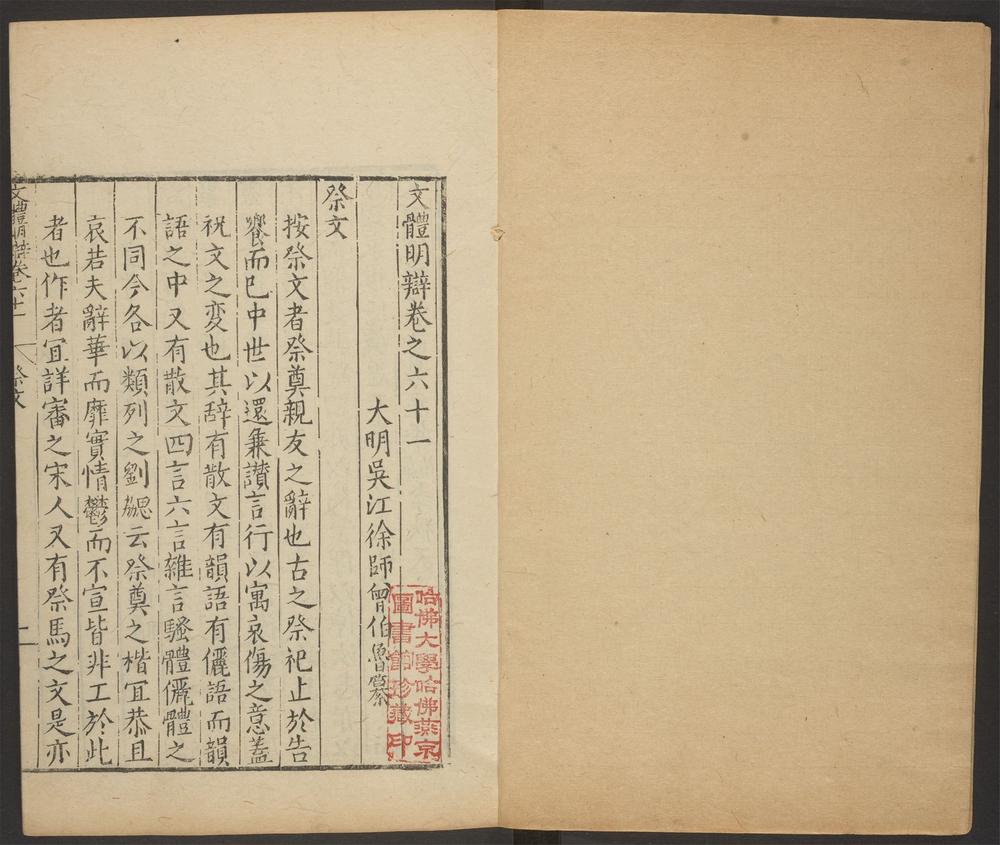 文體明辯卷之六十一
大明吳江徐師曾伯魯纂
祭文
按祭文者祭奠親友之辭也古之祭祀止於告
饗而已中世以還兼讃言行以寓哀傷之意蓋
祝文之変也其辞有散文有韻語有儷語而韻
語之中又有散文四言六言雜言騷體儷體之
不同今各以類列之劉勰云祭奠之楷宜恭且
哀若夫辭華而靡實情鬱而不宣皆非工於此
者也作者宜詳審之宋人又有祭馬之文是亦
文體明辯卷六十一
祭文
一
哈佛大學哈佛燕京
圖書館珍藏印